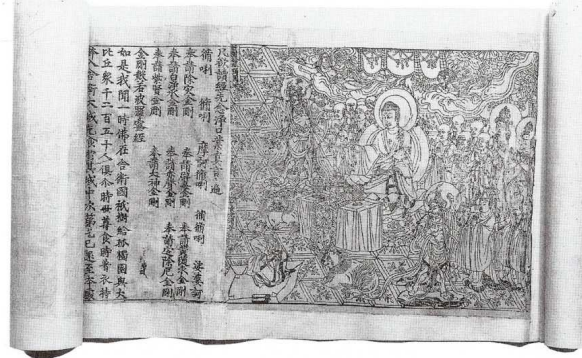 凡欲讀經先念淨口業真言一遍
脩唎 脩唎 摩訶脩唎 脩脩唎 娑婆訶
奉請除灾金剛 奉請辟毒金剛 奉請黃隨求金剛
奉請白淨水金剛 奉請赤聲金剛 奉請定除厄金剛
奉請紫賢金剛 奉請大神金剛
金剛般若波羅蜜經
如是我聞一時佛在舍衛國祇樹給孤獨園與大
比丘衆千二百五十人俱尒時世尊食時著衣持
鉢入舍衛大城乞食於其城中次第乞已還至本處